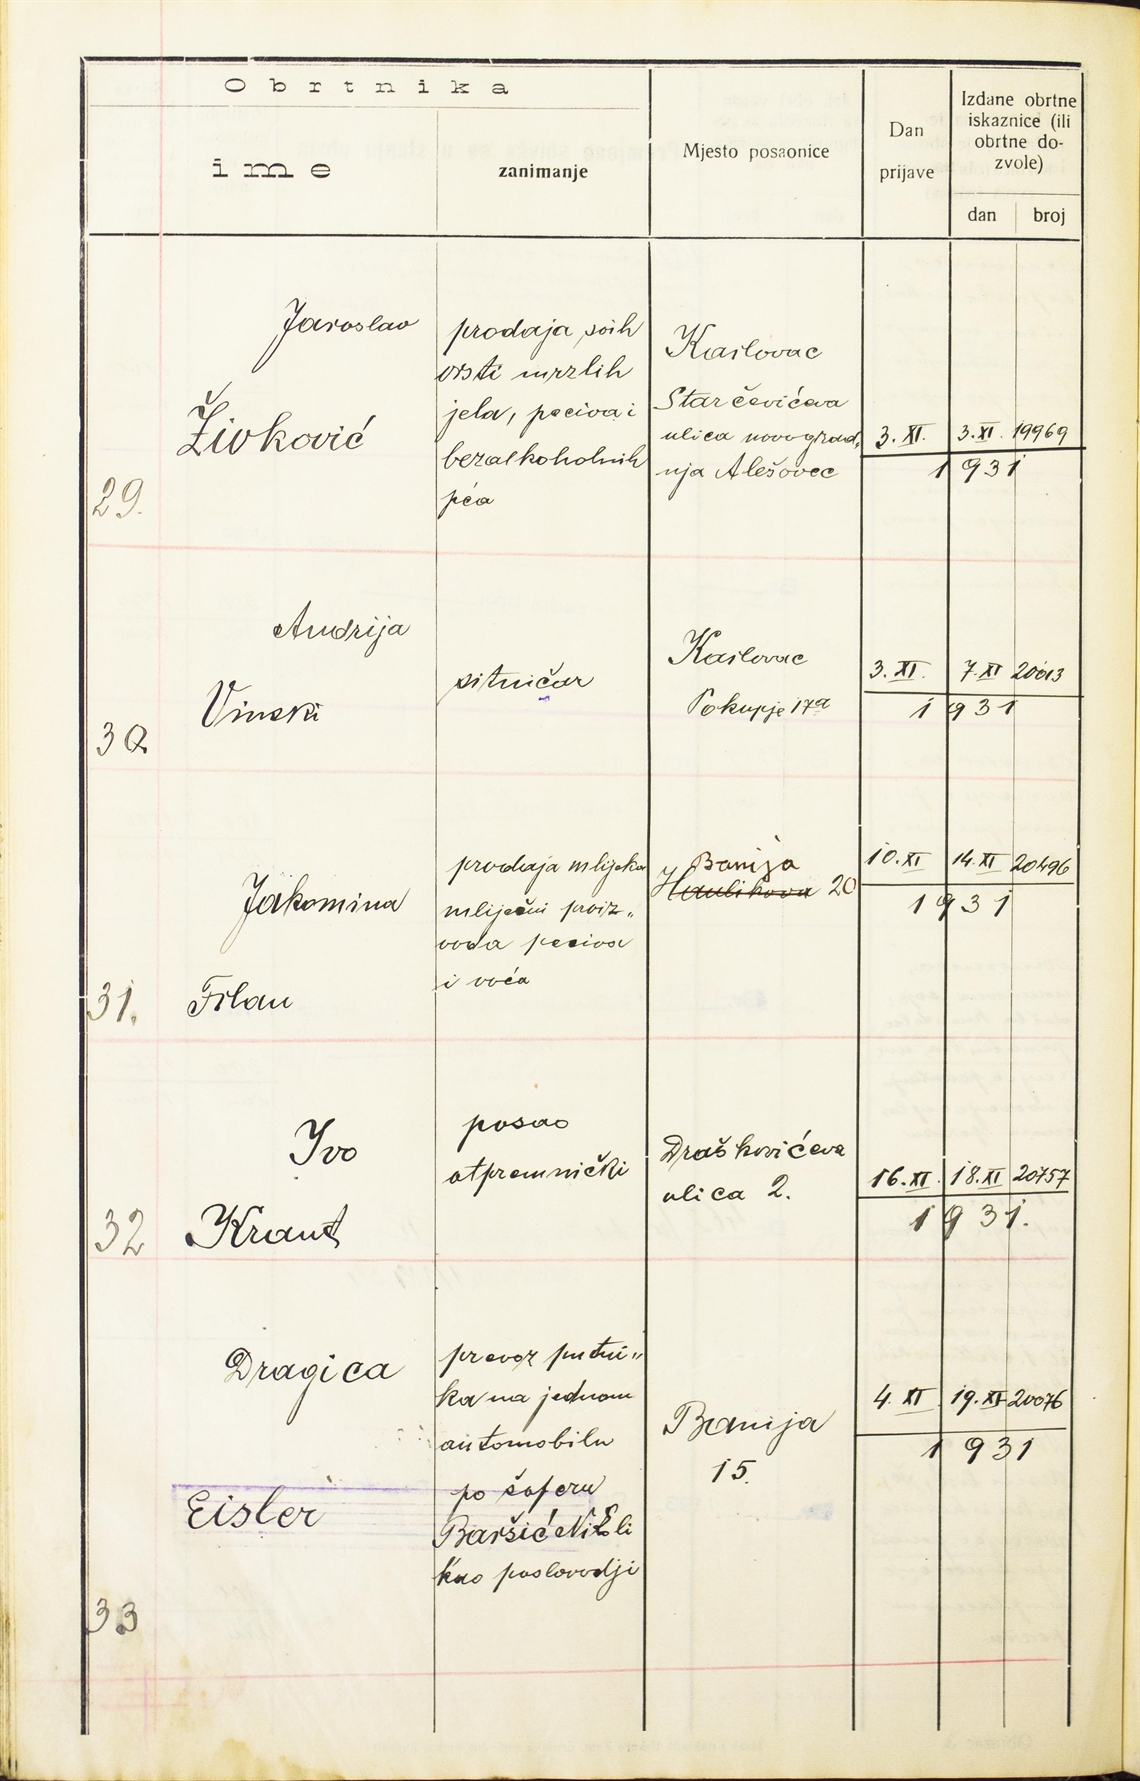 Obrtnika
ime
zanimanje
Mjesto posaonice
Dan
prijave
Izdane obrtne
iskaznice (ili
obrtne do-
zvole)
dan
broj
29.
Jaroslav
Živković
prodaja svih
vrsti mrzlih
jela, peciva i
bezalkoholnih
pća
Karlovac
Starčevićeva
ulica novograd„
nja Alešovec
3. XI.
3. XI. 19969
1931
30
Andrija
Vinski
sitničar
Karlovac
Pokupje 17a
3. XI.
7. XI 20013
1931
31.
Jakomina
Filan
prodaja mlijeka
mliječni proiz„
voda peciva
i voća
Banija
Haulikova 20
10. XI
14. XI 20496
1931
32
Ivo
Kraut
posao
otpremnički
Draškovićeva
ulica 2.
16. XI.
18. XI 20757
1931.
33
Dragica
Eisler
prevoz putni„
ka na jednom
automobilu
po šoferu
Baršić
kao poslovodji
Banija
15.
4. XI
19. XI 20076
1931